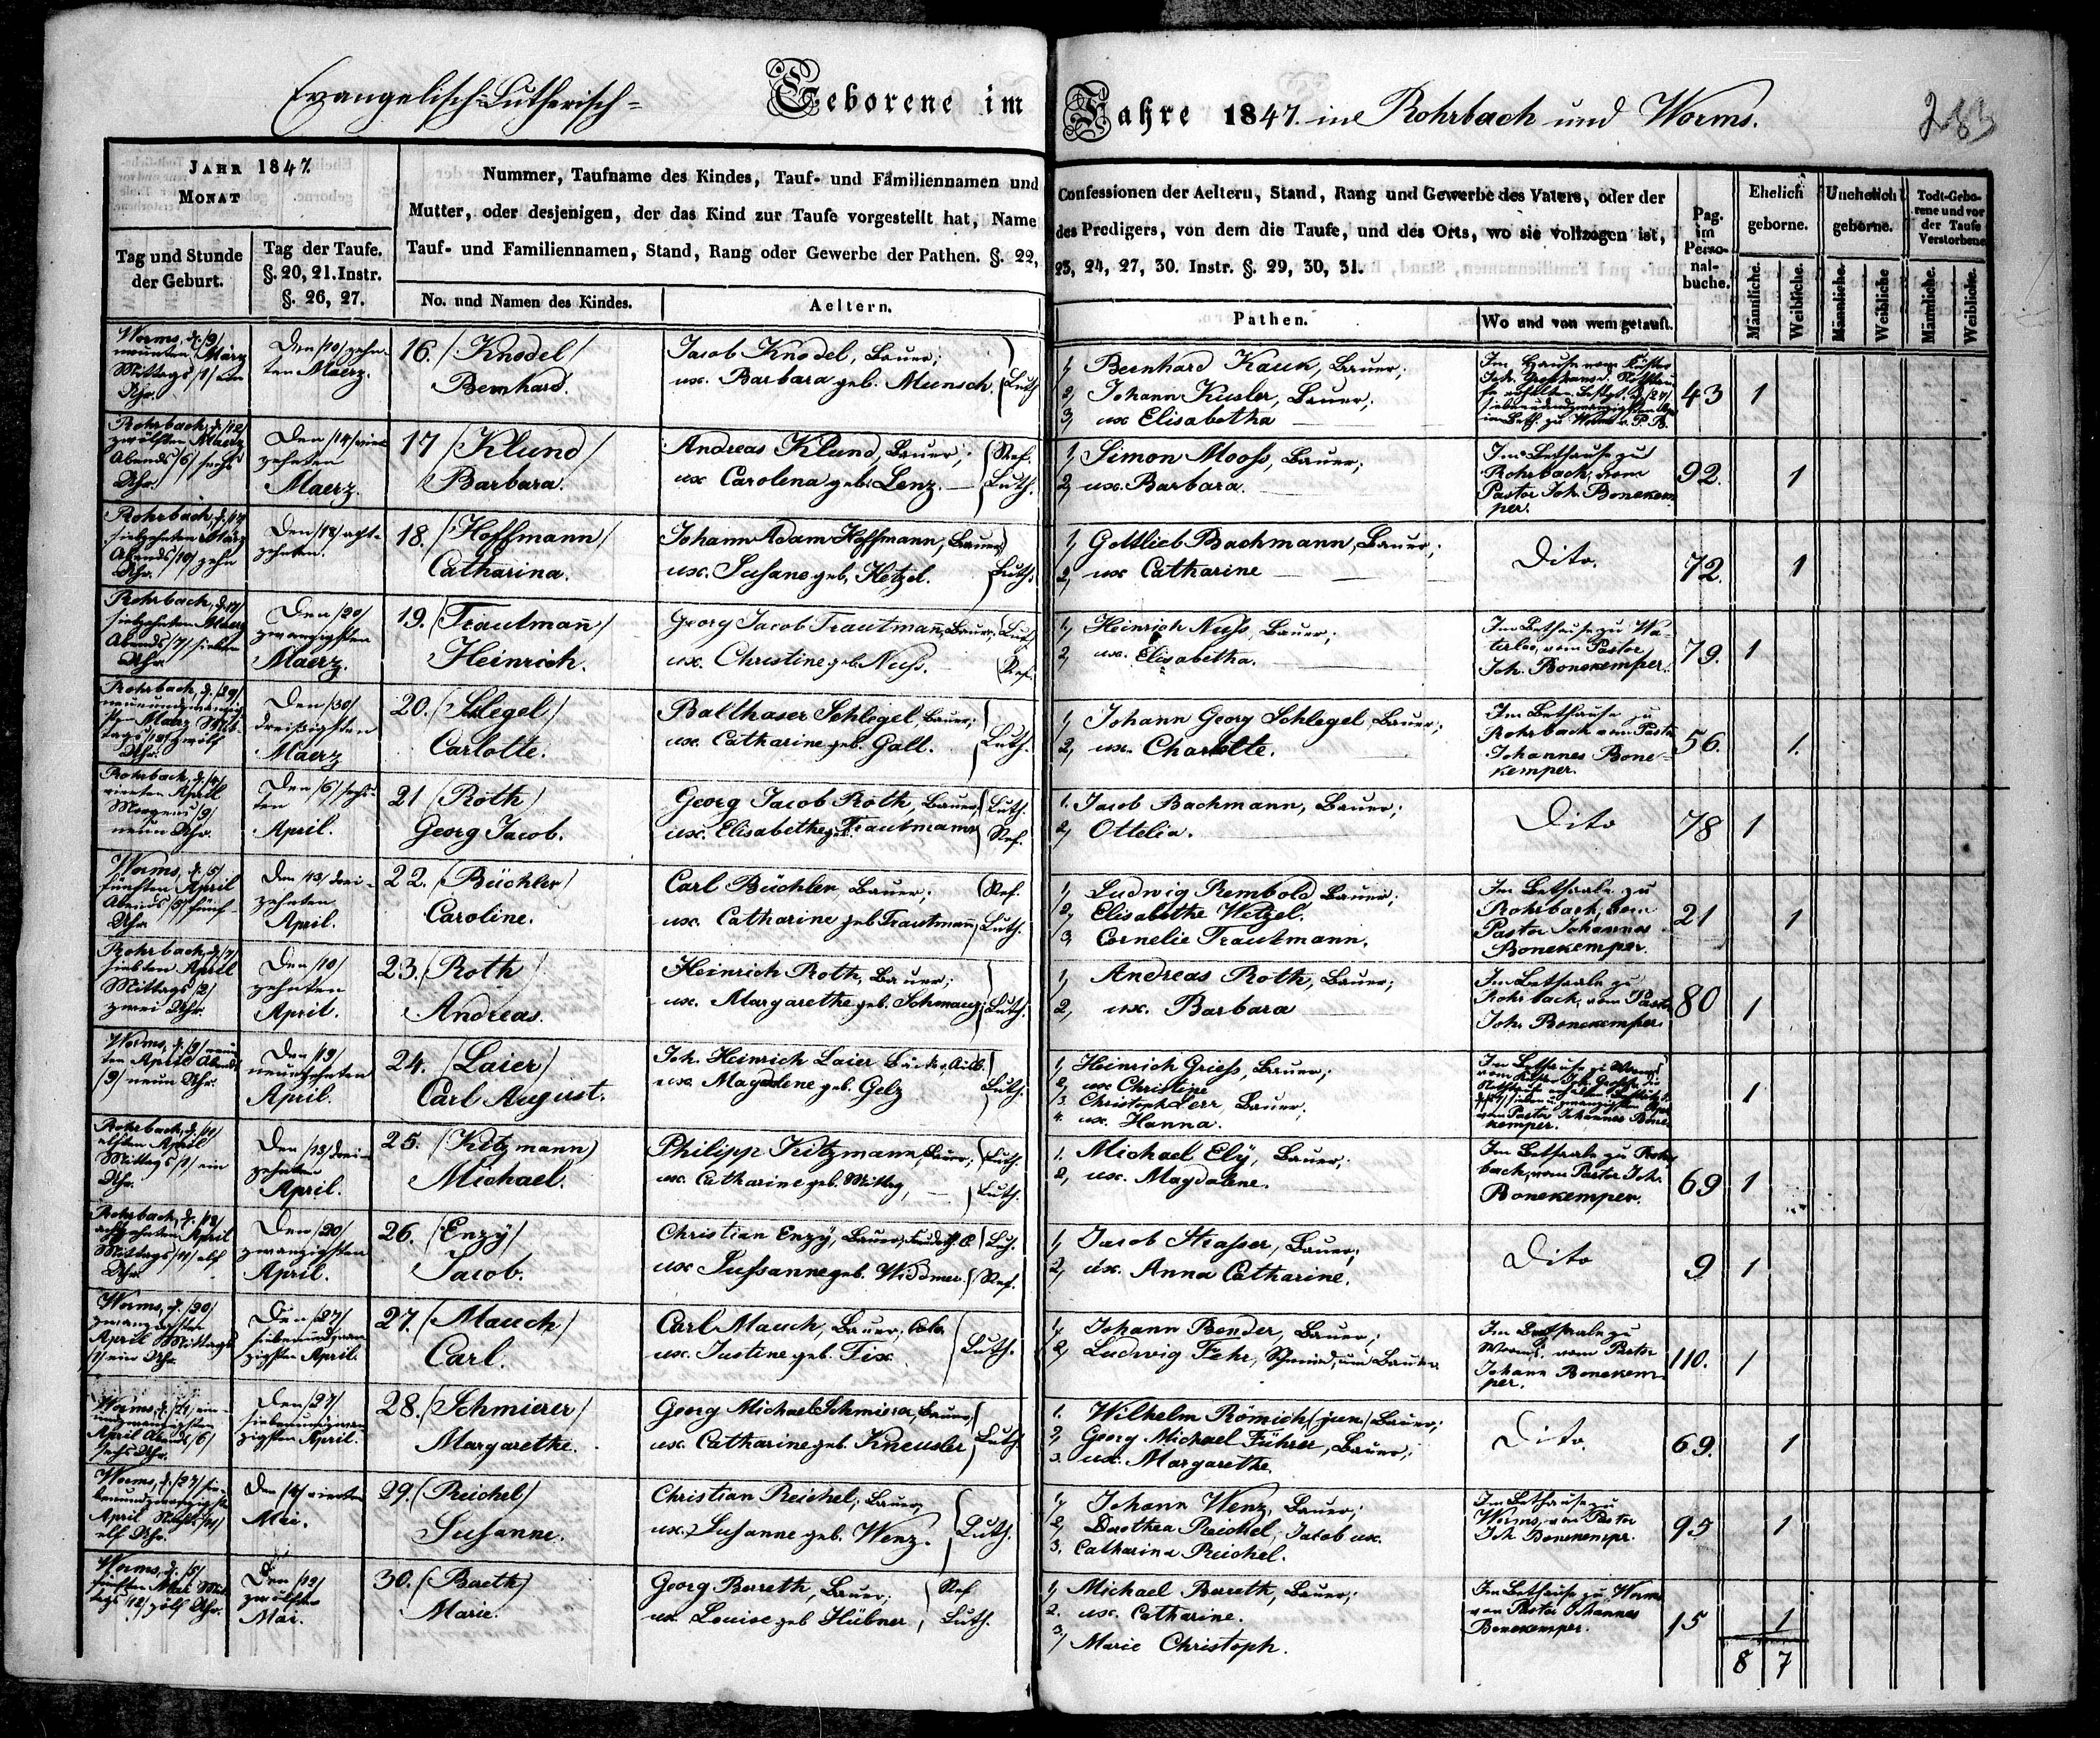 Evangelisch-Lutherisch- Geborene im Jahre 1847. in Rohrbach und Worms.
283
JAHR 1847.
MONAT
Tag und Stunde
der Geburt.
Tag der Taufe.
§. 20, 21. Instr.
§. 26, 27.
Nummer, Taufname des Kindes, Tauf- und Familiennamen und
Mutter, oder desjenigen, der das Kind zur Taufe vorgestellt hat, Name
Tauf- und Familiennamen, Stand, Rang oder Gewerbe der Pathen. §. 22,
No. und Namen des Kindes.
Aeltern.
Confessionen der Aeltern, Stand, Rang und Gewerbe des Vaters, oder der
des Predigers, von dem die Taufe, und des Orts, wo sie vollzogen ist,
23, 24, 27, 30. Instr. §. 29, 30, 31.
Pathen.
Wo und von wem getauft.
Pag.
im
Perso-
nal-
buche.
Ehelich
geborne.
Unehelich
geborne.
Todt-Gebo-
rene und vor
der Taufe
Verstorbene
Männliche.
Weibliche.
Männliche.
Weibliche
Männliche.
Weibliche.
Worms, d. /9/
neunten März
Mittags /1/ ein
Uhr.
Den /10/ zehn-
ten Maerz.
16. /Knodel/
Bernhard.
Jacob Knodel, Bauer;
ux. Barbara geb. Munsch. Luth.
1, Bernhard Kauk, Bauer;
2, Johann Kusler, Bauer;
3, ux Elisabetha
Im Hause vom Küster
43
1
Rohrbach, d. /12/
zwölften Maerz
Abends /6/ sechs
Uhr.
Den /14/ vier
zehnten
Maerz.
17 /Klund/
Barbara.
Andreas Klund, Bauer; Ref.
ux Carolena geb. Lenz. Luth.
1, Simon Mooss, Bauer;
2, ux. Barbara.
Im Bethause zu
Rohrbach, vom
Pastor Joh. Bonekem
per.
92.
1
Rohrbach, d. /17/
siebzehnten März
Abends /10/ zehn
Uhr.
Den /18/ acht-
zehnten.
18. /Hoffmann/
Catharina.
Johann Adam Hoffmann, Bauer;
ux. Susane geb. Hetzel. Luth.
1, Gottlieb Bachmann, Bauer;
2, ux Catharine
Dito.
72.
1
Rohrbach, d. /17/
siebzehnten Maerz
Abends /7/ sieben
Uhr.
Den /20/
zwanzigsten
Maerz.
19. /Trautmañ/
Heinrich.
Georg Jacob Trautmañ, Bauer, Luth.
ux. Christine geb. Nuss. Ref.
1, Heinrich Nuss, Bauer;
2, ux. Elisabetha.
Im Bethause zu Wa-
terloo, vom Pastor
Joh. Bonekemper.
79.
1
Rohrbach, d. /29/
neunundzwanzig
sten Maerz Mit-
tags /12/ zwölf
Uhr.
Den /30/
dreißigsten
Maerz
20. /Schlegel/
Carlotte.
Balthaser Schlegel, Bauer;
ux. Catharine geb. Gall. Luth.
1, Johann Georg Schlegel, Bauer;
2, ux. Charlotte.
Im Bethause zu
Rohrbach vom Pastor
Johannes Bone-
kemper.
56.
1.
Rohrbach, d. /4/
vierten April
Morgens /9/
neun Uhr.
Den /6/ sechs-
ten
April.
21 /Roth/
Georg Jacob.
Georg Jacob Roth, Bauer, Luth.
ux. Elisabethe geb. Trautmann Ref.
1. Jacob Bachmann, Bauer;
2, Ottelia.
Dito
78
1
Worms, d. /5/
fünften April
Abends /5/ fünf-
Uhr.
Den /13/ drei-
zehnten
April.
22. /Büchler/
Caroline.
Carl Büchler Bauer; Ref.
ux. Catharine geb. Trautmañ, Luth.
1, Ludwig Rembold Bauer;
2, Elisabethe Wetzel.
3, Cornelie Trautmann.
Im Bethsaale zu
Rohrbach, vom
Pastor Johannes
Bonekemper.
21
1
Rohrbach, d. /7/
siebten April
Mittags /2/
zwei Uhr.
Den /10/
zehnten
April.
23. /Roth/
Andreas.
Heinrich Roth, Bauer;
ux. Margarethe geb. Schmauz, Luth.
1, Andreas Roth, Bauer;
2, ux. Barbara
Im Bethsaale zu
Rohrbach, vom Pastor
Joh. Bonekemper.
80
1
Worms, d. /9/ neun
ten April Abends
/9/ neun Uhr.
Den /19/
neunzehnten
April.
24. /Laier/
Carl August.
Joh. Heinrich Laier
ux. Magdaline geb. Gelz Luth.
1, Heinrich Griess, Bauer;
2, ux Christine
3. Christoph Lerr, Bauer;
4. ux. Hanna.
Im Bethause zu Worms
vom Pastor Johannes Bone-
kemper.
1
Rohrbach, d. /11/
elften April
Mittags /1/ ein
Uhr.
Den /13/ drei-
zehnten
April.
25. /Kitzmann/
Michael.
Philipp Kitzmann, Bauer; Luth.
ux. Catharine geb. Mittag, Luth.
1. Michael Ely, Bauer;
2, ux. Magdalene.
Im Bethsaale zu Rohr
bach, vom Pastor Joh.
Bonekemper.
69
1
Rohrbach, d. /18/
achtzehnten April
Mittags /11/ elf
Uhr.
Den /20/
zwanzigsten
April.
26. /Enzy/
Jacob.
Christian Enzy, Bauer, Luth.
ux Sussanne geb. Widdmer. Ref.
1, Jacob Strasser, Bauer;
2, ux. Anna Catharine.
Dito
9
1
Worms, d. /20/
zwanzigsten
April Mittags
/1/ ein Uhr.
Den /27/
siebenundzwan
zigsten April.
27. /Mauch/
Carl.
Carl Mauch, Bauer,
ux. Justine geb. Fix. Luth.
1, Johann Bender, Bauer;
2, Ludwig Fehr, Schmied, und Bauer.
Im Bethsaale zu
Worms, vom Pastor
Johann Bonekem-
per.
110.
1
Worms, d. /21/ ein-
undzwanzigsten
April Abends /6/
sechs Uhr.
Den /27/
siebenundzwan
zigsten April.
28. /Schmierer/
Margarethe.
Georg Michael Schmierer, Bauer,
ux. Catharine geb. Kneusler Luth.
1. Wilhelm Römich, (jun) Bauer;
2, Georg Michael Führer, Bauer;
3. ux. Margarethe.
Dito.
69.
1
Worms, d. /27/ sie-
benundzwanzigsten
April Nachts /11/
elf Uhr.
Den /4/ vierten
Mai.
29. /Reichel/
Susanne.
Christian Reichel, Bauer,
ux. Susanne geb. Wenz. Luth.
1, Johann Wenz, Bauer;
2, Dorothea Reichel, Jacob ux.
3. Catharina Reichel.
Im Bethause zu
Worms, von Pastor
Joh. Bonekemper.
95
1
Worms, d. /5/
fünften Mai Mit-
tags /12/ zölf Uhr.
Den /12/
zwölften
Mai.
30. /Baeth/
Marie.
Georg Berreth, Bauer; Ref.
ux. Louise geb Hübner, Luth.
1, Michael Bareth, Bauer;
2. ux. Catharine.
3, Marie Christoph.
Im Bethause zu Worms
von Pastor Johannes
Bonekemper.
15
1
8 7